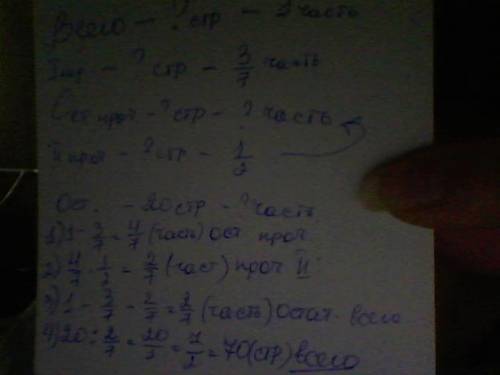 Всего - ? стр - 1 часть
I пр - ? стр - 3/7 часть
Ост проч - ? стр - ? часть
II проч - ? стр - 1/2
Ост. - 20 стр - ? часть
1) 1 - 3/7 = 4/7 (часть) ост проч
2) 4/7 · 1/2 = 2/7 (част) проч II
3) 1 - 3/7 - 2/7 = 2/7 (часть) Остат. всего
4) 20 : 2/7 = 20/1 · 7/2 = 70 (стр) всего